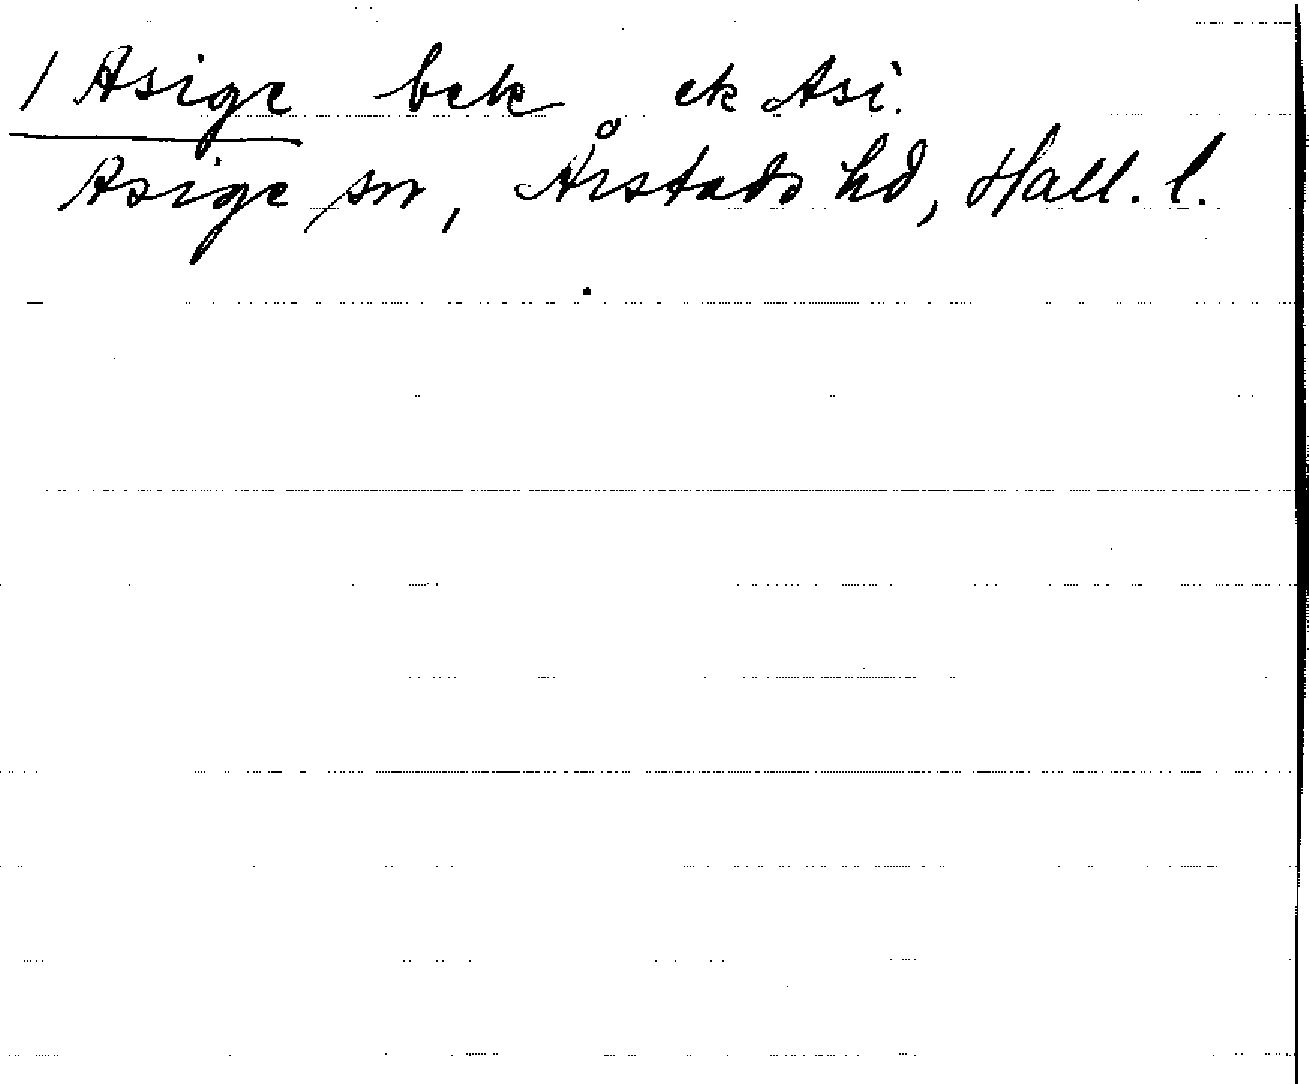 / Asige bek ek Asi.
Asige sn, Årstads hd, Hall. l.